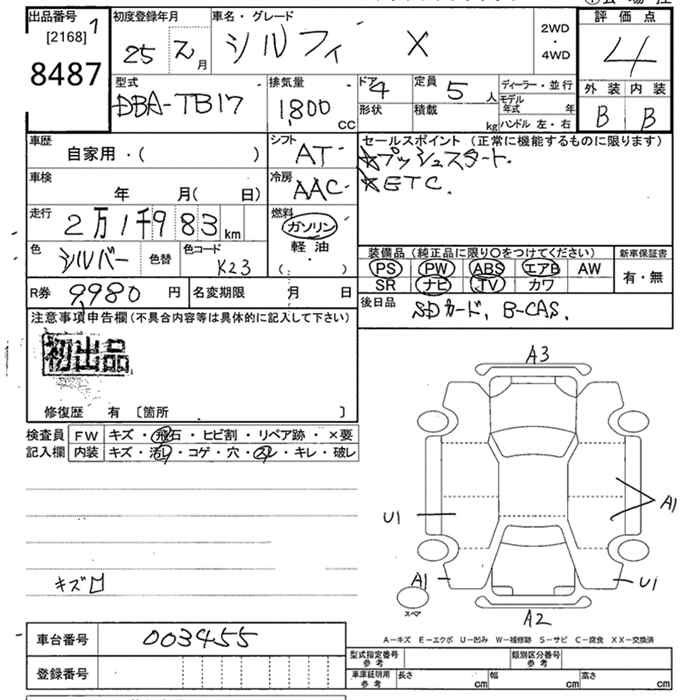 出品番号 1
[2168]
8487
初度登録年月
25 元 月
車名・グレード
シルフィ X
2WD
・
4WD
評価点
4
外装 内装
B B
型式
DBA-TB17
排気量
1,800
CC
ドア 4
形状
定員 5 人
積載 kg
ディーラー・並行
モデル年式 年
ハンドル 左・右
車歴
自家用・( )
シフト
AT
セールスポイント (正常に機能するものに限ります)
☆プッシュスタート.
☆ETC.
車検
年 月( 日)
冷房
AAC
走行
2万1千983 km
燃料
ガソリン
軽油
( )
色
シルバー
色替
色コード
K23
装備品 (純正品に限り○をつけてください)
PS PW ABS エアB AW
SR ナビ TV カワ
新車保証書
有・無
R券 9980 円
名変期限 月 日
後日品
SDカード、B-CAS.
注意事項申告欄(不具合内容等は具体的に記入して下さい)
初出品
修復歴 有 〔箇所 〕
検査員
記入欄
FW キズ・飛石・ヒビ割・リペア跡・×要
内装 キズ・汚レ・コゲ・穴・スレ・キレ・破レ
キズロ
A3
U1
A1
A1
U1
スペア
A2
A−キズ E−エクボ U−凹み W−補修跡 S−サビ C−腐食 XX−交換済
車台番号 003455
登録番号
型式指定番号
参考
類別区分番号
参考
車庫証明用
参考
長さ cm 幅 cm 高さ cm